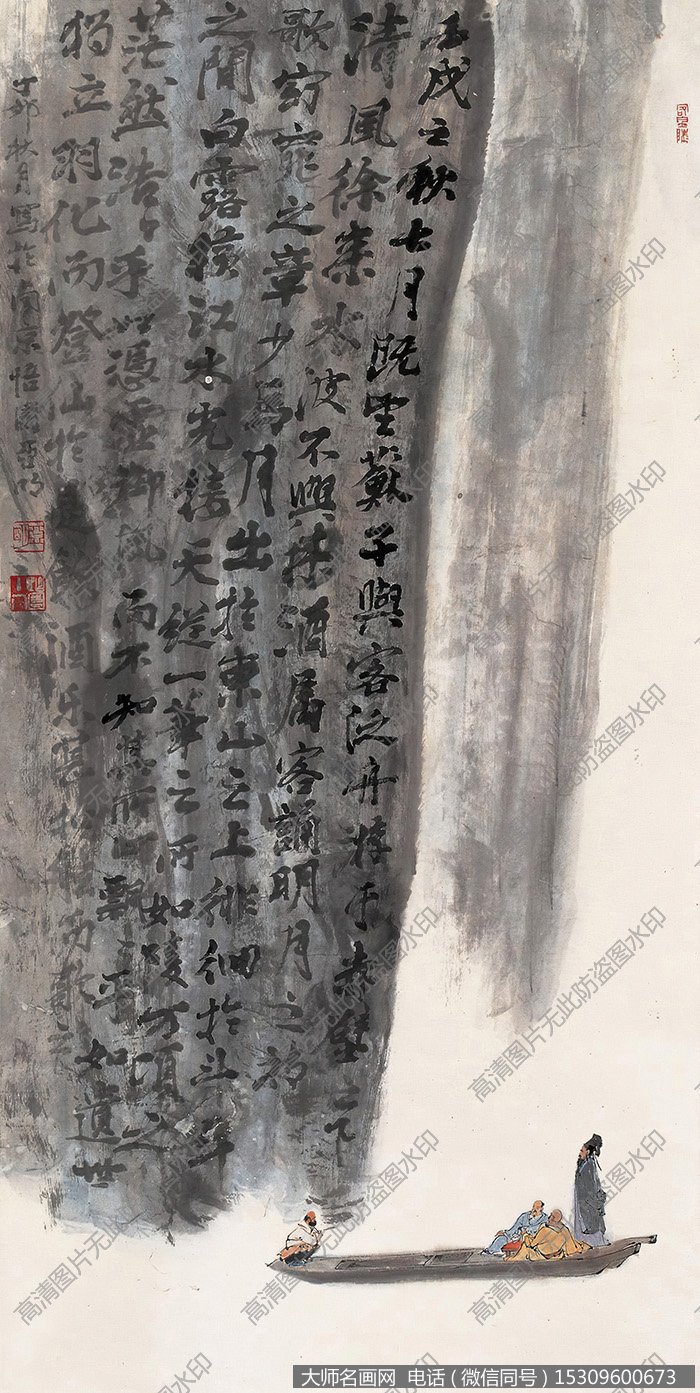 壬戌之秋七月既望蘇子與客泛舟游于赤壁之下
清風徐來水波不興舉酒属客誦明月之詩
歌窈窕之章少焉月出於東山之上徘徊於斗牛
之間白露橫江水光接天縱一葦之所如凌万頃之
茫然浩浩乎如憑虛御風而不知其所止飄飄乎如遺世
獨立羽化而登仙於是飲酒乐甚扣舷而歌之
丁卯秋月寫於南京悟亚明
高清图片无此防盗图水印
大师名画网 电话（微信同号）15309600673